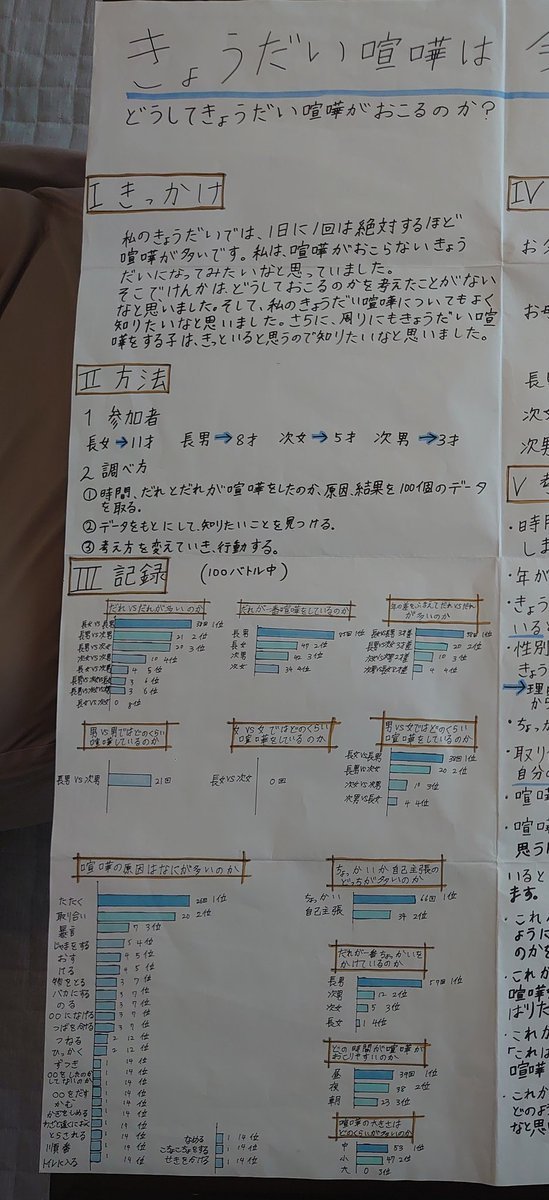 きょうだい喧嘩は
どうしてきょうだい喧嘩がおこるのか?
I きっかけ
私のきょうだいでは、1日に1回は絶対するほど
喧嘩が多いです。私は、喧嘩がおこらないきょう
だいになってみたいなと思っていました。
そこでけんかは、どうしておこるのかを考えたことがない
なと思いました。そして、私のきょうだい喧嘩についてもよく
知りたいなと思いました。さらに、周りにもきょうだい喧
嘩をする子は、きっといると思うので知りたいなと思いました。
II 方法
1 参加者
長女→11才 長男→8才 次女→5才 次男→3才
2 調べ方
①時間、だれとだれが喧嘩をしたのか、原因、結果を100個のデータ
を取る。
②データをもとにして、知りたいことを見つける。
③考え方を変えていき、行動する。
III 記録 (100バトル中)
だれVSだれが多いのか
長女VS長男 38回 1位
長男VS次男 21 2位
長男VS次女 20 3位
次女VS次男 10 4位
長女VS次男 4 5位
3 6位
3 6位
長女VS次女 0 8位
だれが一番喧嘩をしているのか
長男 1位
長女 47 2位
次男 42 3位
次女 34 4位
年の差をふまえてだれVSだれ
が多いのか
長女VS長男 3才差 38回 1位
長男VS次女 3才差 20 2位
10 3位
4 4位
男VS男ではどのくらい
喧嘩をしているのか
長男VS次男 21回
女VS女ではどのくらい
喧嘩をしているのか
長女VS次女 0回
男VS女ではどのくらい
喧嘩をしているのか
長女VS長男 38回 1位
長男VS次女 20 2位
次男VS次女 10 3位
次男VS長女 4 4位
喧嘩の原因はなにが多いのか
たたく 1位
取り合い 20 2位
暴言 7 3位
じゃまをする 5 4位
おす 4 5位
ける 4 5位
物をとる 3 7位
バカにする 3 7位
のる 3 7位
○○になげる 3 7位
つばを付ける 3 7位
つねる 2 12位
ひっかく 2 12位
ずつき 1 14位
○○をしたのか
してないのか 1 14位
○○をだす 1 14位
かむ 1 14位
かぎをしめる 1 14位
わざと遠くにおく 1 14位
とらされる 1 14位
順番 1 14位
トイレに入る 1 14位
なめる 1 14位
こちょこちょをする 1 14位
せきを付ける 1 14位
ちょっかいか自己主張の
どっちが多いのか
ちょっかい 66回 1位
自己主張 34 2位
だれが一番ちょっかいを
かけているのか
長男 57回 1位
次男 12 2位
次女 5 3位
長女 1 4位
どの時間が喧嘩が
おこりやすいのか
昼 39回 1位
夜 38 2位
朝 23 3位
喧嘩の大きさは
どのくらいが多いのか
中 53 1位
小 47 2位
大 0 3位
IV
お
お
長
次女
次男
V
・時間
しま
・年が
・きょう
いると
・性別
きょう
→理
から
・ちょっ
・取り
自分
・喧嘩
・喧嘩
思う
いると
ます。
・これ
ように
のかを
・これが
喧嘩
ばりた
・これか
「これは
喧嘩
・これか
どのよ
なと思い